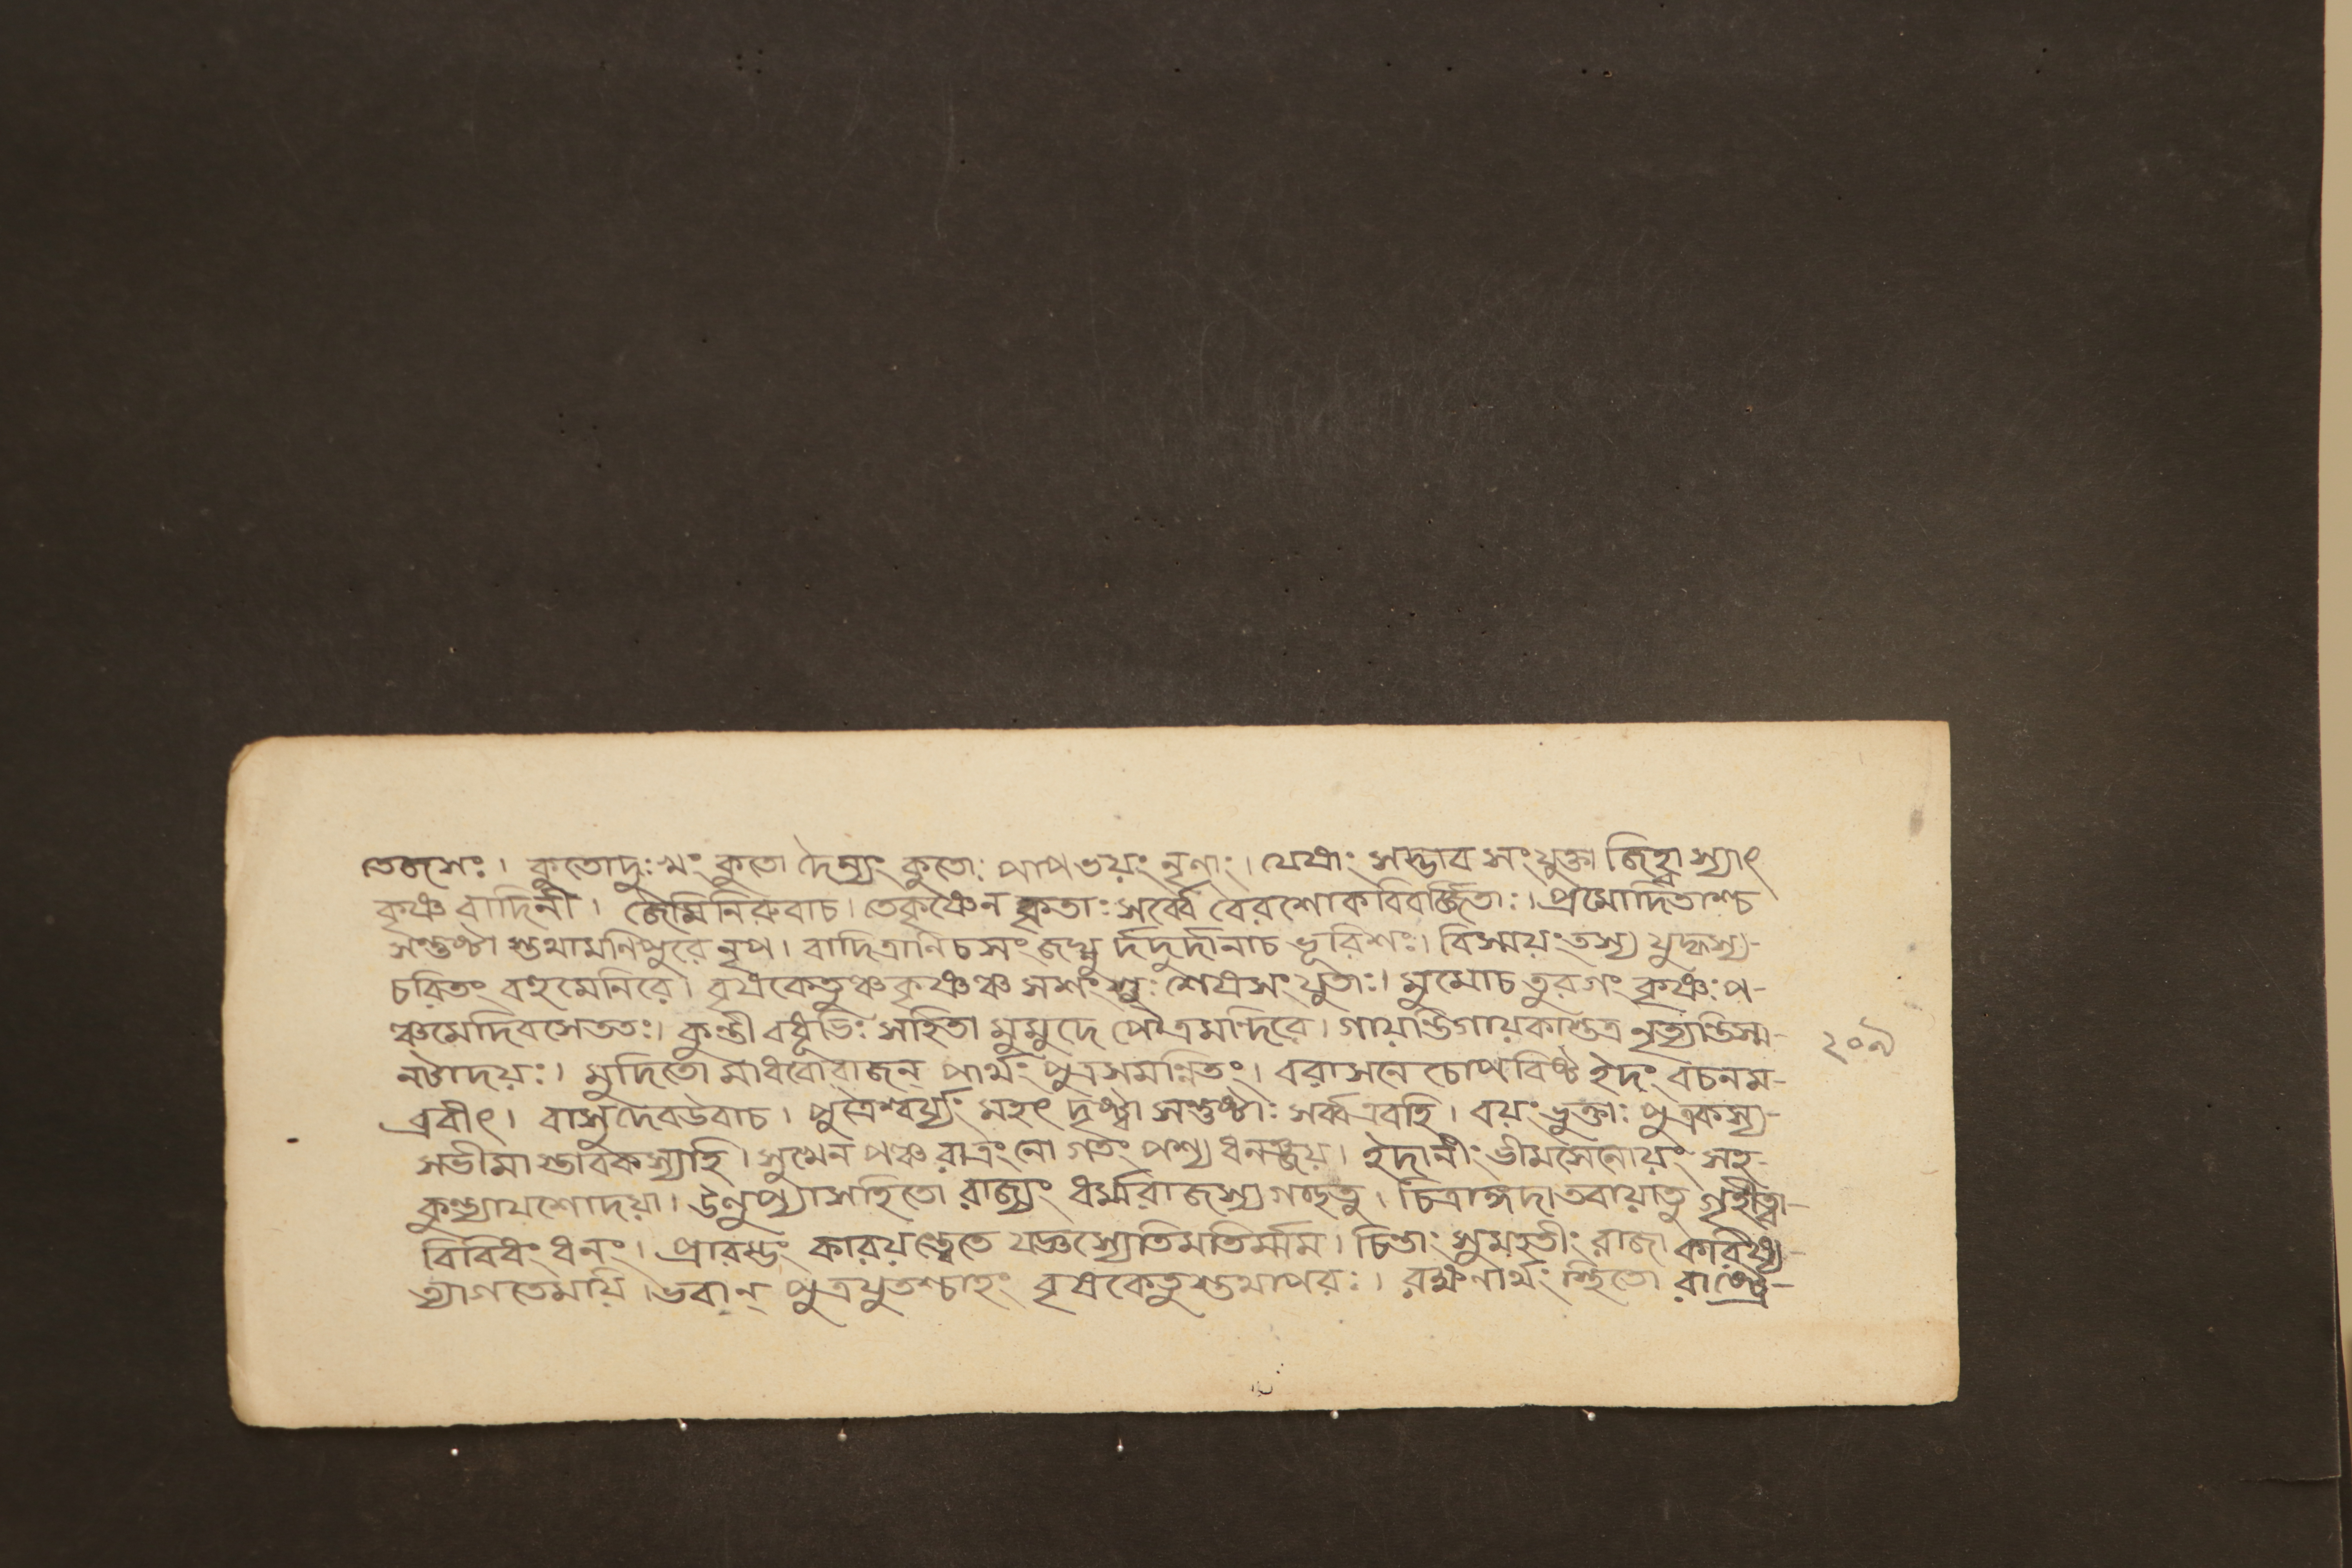 তেজসঃ। কুতোদুঃখং কুতো দৈন্যং কুতোঃ পাপভয়ং নৃণাং। যেষাং সদ্ভাব সংযুক্তা জিহ্বা স্যাৎ
কৃষ্ণ বাদিনী। জৈমিনিরুবাচ। তেকৃষ্ণেন কৃতাঃ সর্ব্বে বৈরশোকবিবর্জ্জিতাঃ। প্রমোদিতাশ্চ
সন্তুষ্টা স্তথামনিপুরে নৃপ। বাদিত্রানিচসংজঘ্নু র্দদুর্দানাচ ভূরিশঃ। বিস্ময়ং তস্য যুদ্ধস্য-
চরিতং বহুমেনিরে। বৃষকেতুঞ্চ কৃষ্ণঞ্চ সশংসুঃ শেষসংযুতাঃ। মুমোচ তুরগং কৃষ্ণঃ প-
ঞ্চমেদিবসেততঃ। কুন্তী বধূভিঃ সহিতা মুমুদে পৌত্রমন্দিরে। গায়ন্তিগায়কাস্তত্র নৃত্যন্তিস্ম-
নটাদয়ঃ। মুদিতো মাধবোরাজন্ পার্থং পুত্রসমন্নিতং। বরাসনে চোপবিষ্ট ইদং বচনম-
ব্রবীৎ। বাসুদেবউবাচ। পুত্রৈশ্বর্য্যং মহৎ দৃষ্ট্বা সন্তুষ্টাঃ সর্ব্বএবহি। বয়ং ভুক্তাঃ পুত্রকস্য-
সভীমা স্তাবকস্যাহি। সুখেন পঞ্চরাত্রং নো গতং পশ্য ধনঞ্জয়। ইদানীং ভীমসেনোয়ং সহ-
কুন্ত্যাযশোদয়া। উলুপ্যাসহিতো রাজ্যং ধর্ম্মরাজস্য গচ্ছতু। চিত্রাঙ্গদাতবায়াতু গৃহীত্বা-
বিবিধং ধনং। প্রারম্ভং কারয়ন্ত্বেতে যজ্ঞস্যেতিমতির্ম্মম। চিন্তাং সুমহতীং রাজা করিষ্য-
ত্যাগতেময়ি। ভবান্ পুত্রযুতশ্চাহং বৃষকেতুস্তথাপরঃ। রক্ষণার্থং স্থিতো রাষ্ট্রে-
২০৯